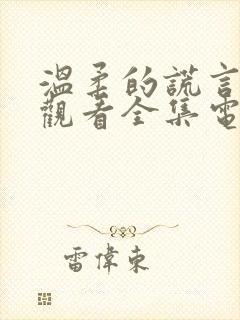 溫柔的謊言
觀看全集電
雷偉東